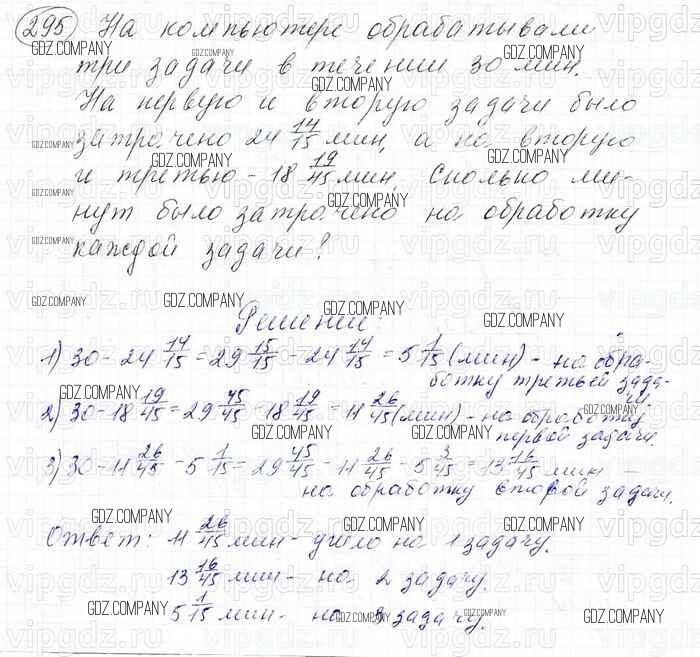 295 На компьютере обрабатывали
три задачи в течении 30 мин.
На первую и вторую задачи было
затрачено 24 14/15 мин, а на вторую
и третью - 18 19/45 мин. Сколько ми-
нут было затрачено на обработку
каждой задачи?
Решение:
1) 30 - 24 14/15 = 29 15/15 - 24 14/15 = 5 1/15 (мин) - на обра-
ботку третьей зада-
чи
2) 30 - 18 19/45 = 29 45/45 - 18 19/45 = 11 26/45 (мин) - на обработку
первой задачи.
3) 30 - 11 26/45 - 5 1/15 = 29 45/45 - 11 26/45 - 5 3/45 = 13 16/45 мин -
на обработку второй задачи.
Ответ: 11 26/45 мин - ушло на 1 задачу.
13 16/45 мин - на 2 задачу.
5 1/15 мин - на 3 задачу.
GDZ.COMPANY
vipgdz.ru